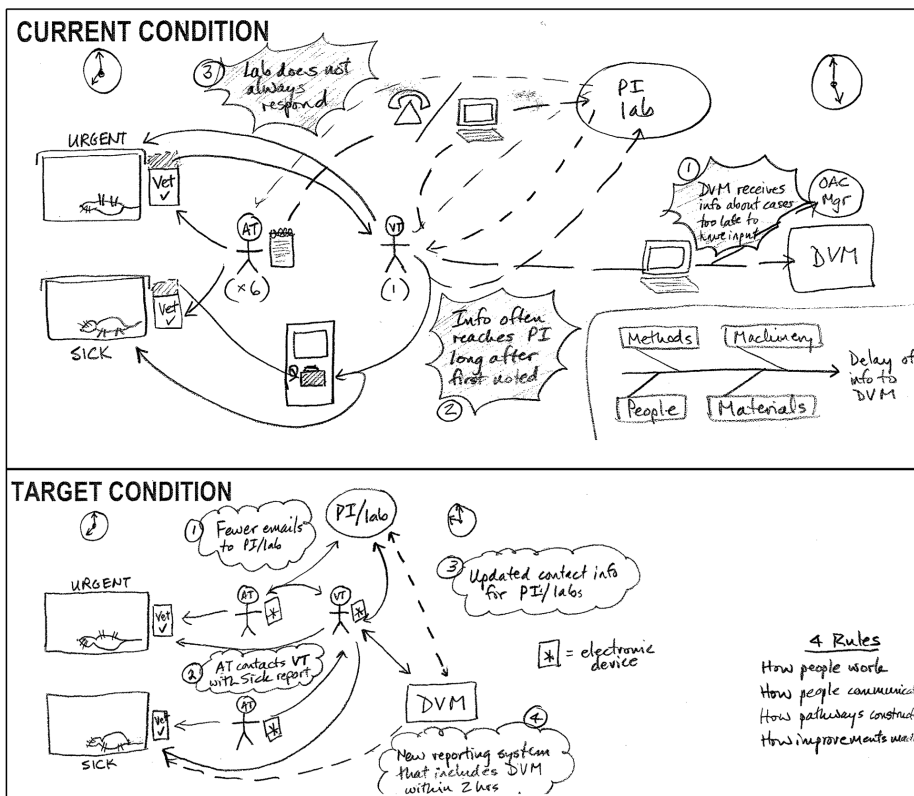 CURRENT CONDITION
③ Lab does not
always
respond
PI
lab
URGENT
Vet
✓
AT
(×6)
VT
(1)
①
DVM receives
info about cases
too late to
have input
OAC
Mgr
DVM
Vet
✓
SICK
Info often
reaches PI
long after
first noted
②
Methods
Machinery
People
Materials
Delay of
info to
DVM
TARGET CONDITION
① Fewer emails
to PI/lab
PI/lab
③
Updated contact info
for PI/labs
URGENT
Vet
✓
AT
*
VT
*
② AT contacts VT
with Sick report
* = electronic
device
Vet
✓
AT
*
SICK
DVM
④
New reporting system
that includes DVM
within 2 hrs
4 Rules
How people work
How people communica
How pathways construct
How improvements ma